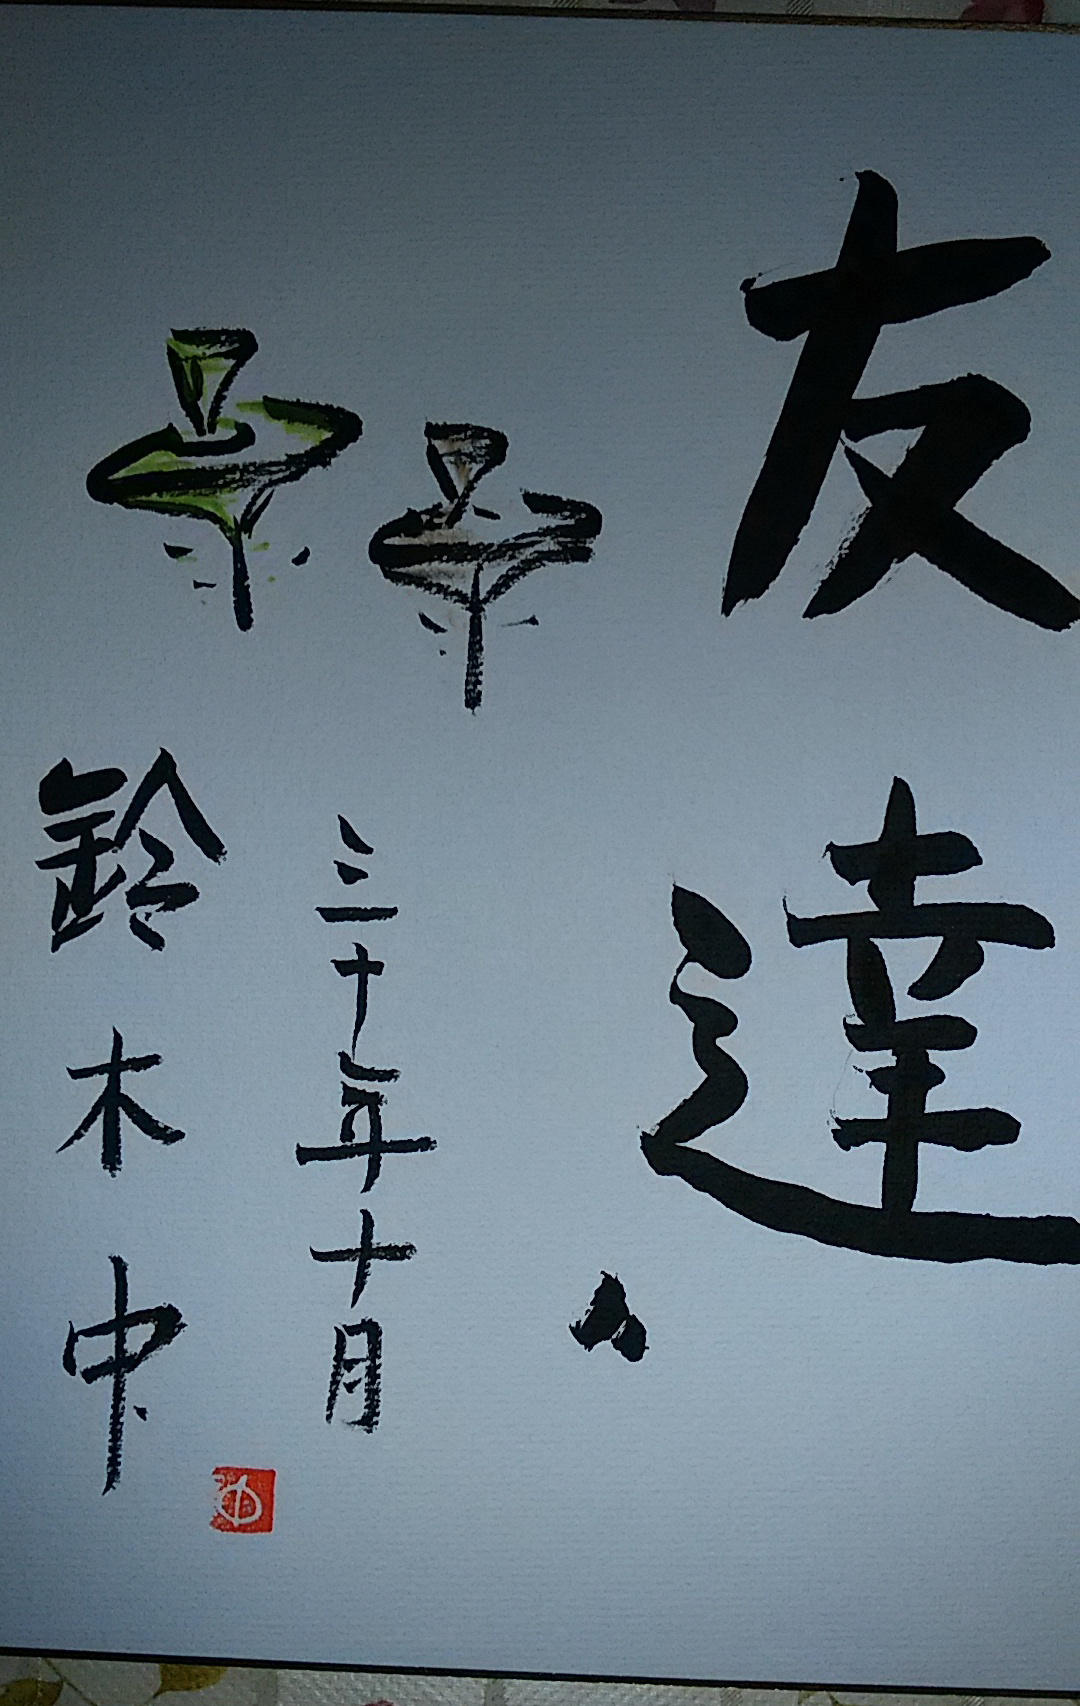 友達
三十年十月
鈴木中
中